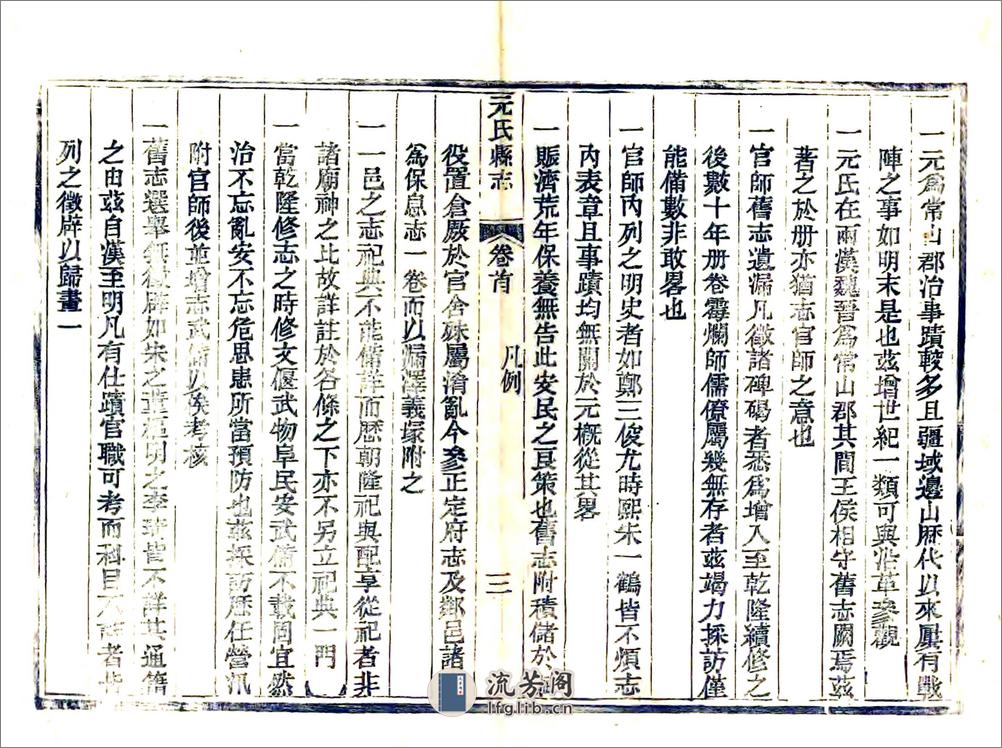 一元爲常山郡治事蹟較多且疆域邊山歷代以來屢有戰
陣之事如明末是也茲增世紀一類可與沿革參觀
一元氏在兩漢魏晉爲常山郡其間王侯相守舊志闕焉茲
著之於册亦猶志官師之意也
一官師舊志遺漏凡徵諸碑碣者悉爲增入至乾隆續修之
後數十年册卷霉爛師儒僚屬幾無存者茲竭力採訪僅
能備數非敢畧也
一官師内列之明史者如鄭三俊尤時熙朱一鶴皆不煩志
内表章且事蹟均無關於元概從其畧
元氏縣志
卷首
凡例
三
一賑濟荒年保養無告此安民之良策也舊志附積儲於
役置倉厫於官舍殊屬淆亂今參正定府志及鄰邑諸
爲保息志一卷而以漏澤義塚附之
一一邑之志祀典不能備詳而歷朝隆祀與配享從祀者非
諸廟神之比故詳註於各條之下亦不另立祀典一門
一當乾隆修志之時修文偃武物阜民安武備不載固宜然
治不忘亂安不忘危思患所當預防也茲採訪歷任營汛
附官師後並增志武備以俟考核
一舊志選舉無徵辟如宋之 明之李 皆不詳其通籍
之由茲自漢至明凡有仕蹟官職可考而科目 者皆
列之徵辟以歸畫一
流芳阁
lfglib.cn